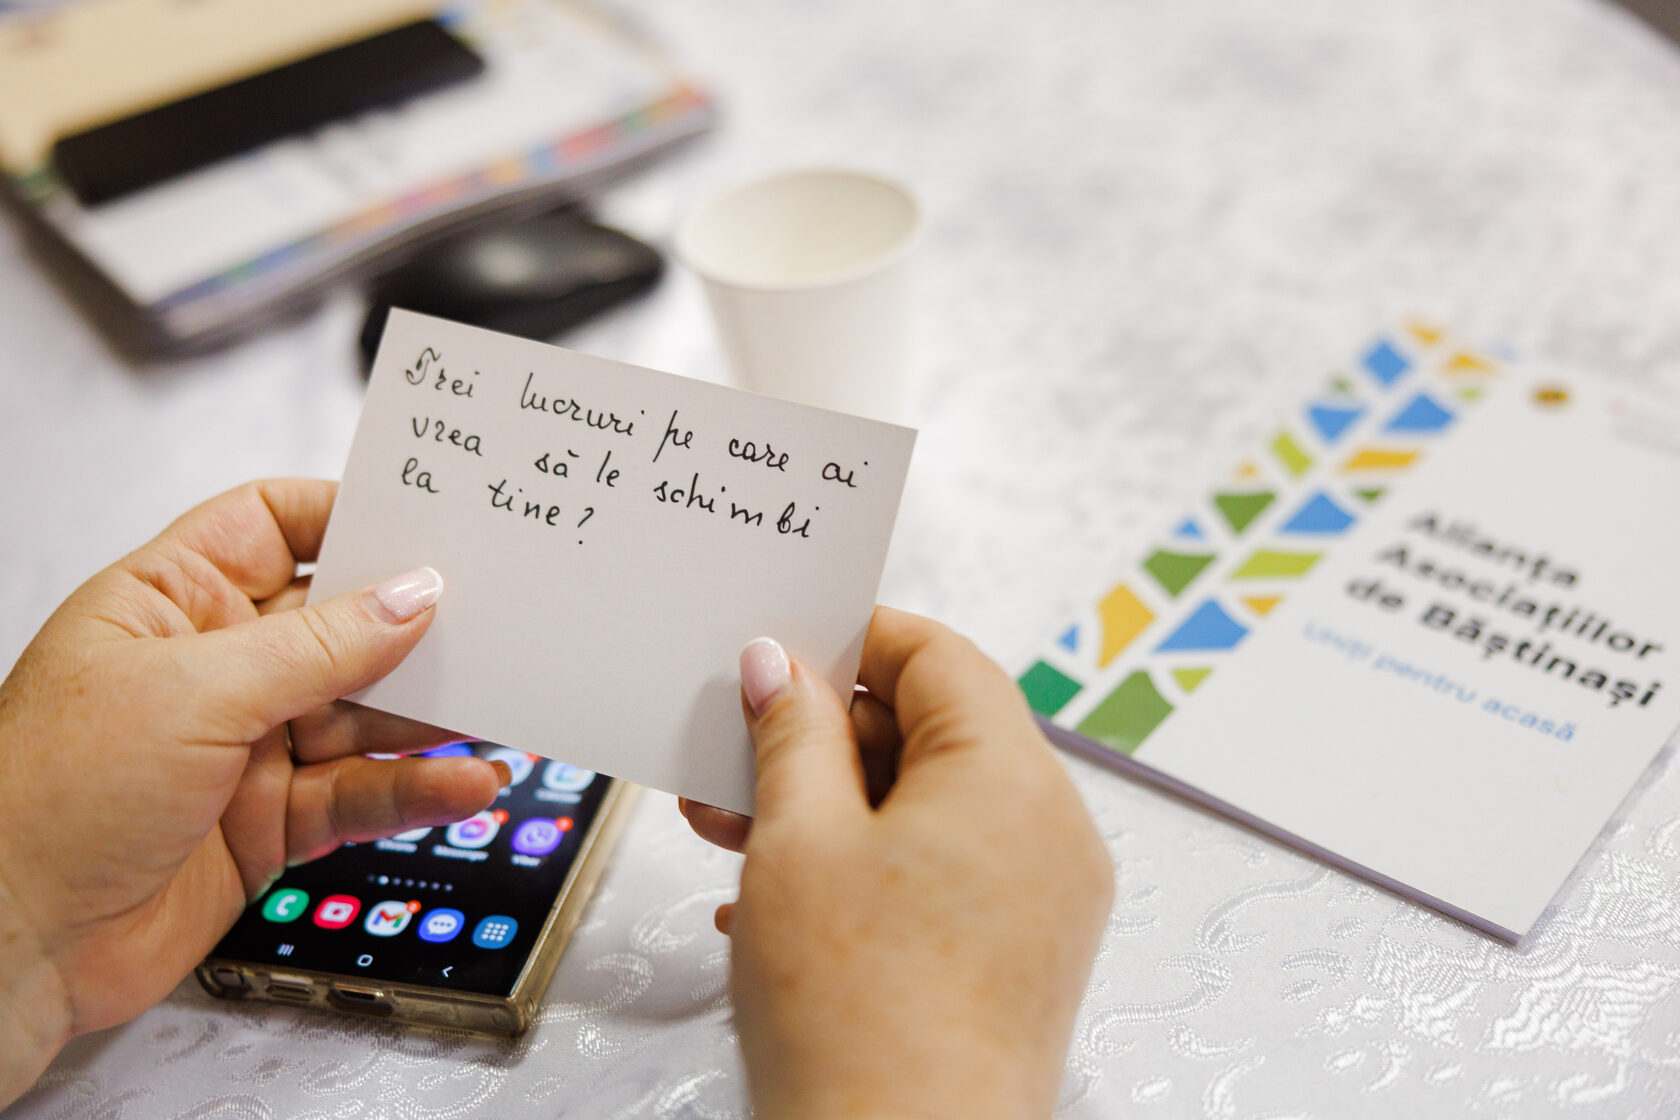 Trei lucruri pe care ai
vrea să le schimbi
la tine?
Alianța
Asociațiilor
de Băștinași
Uniți pentru acasă
Messenger
Viber